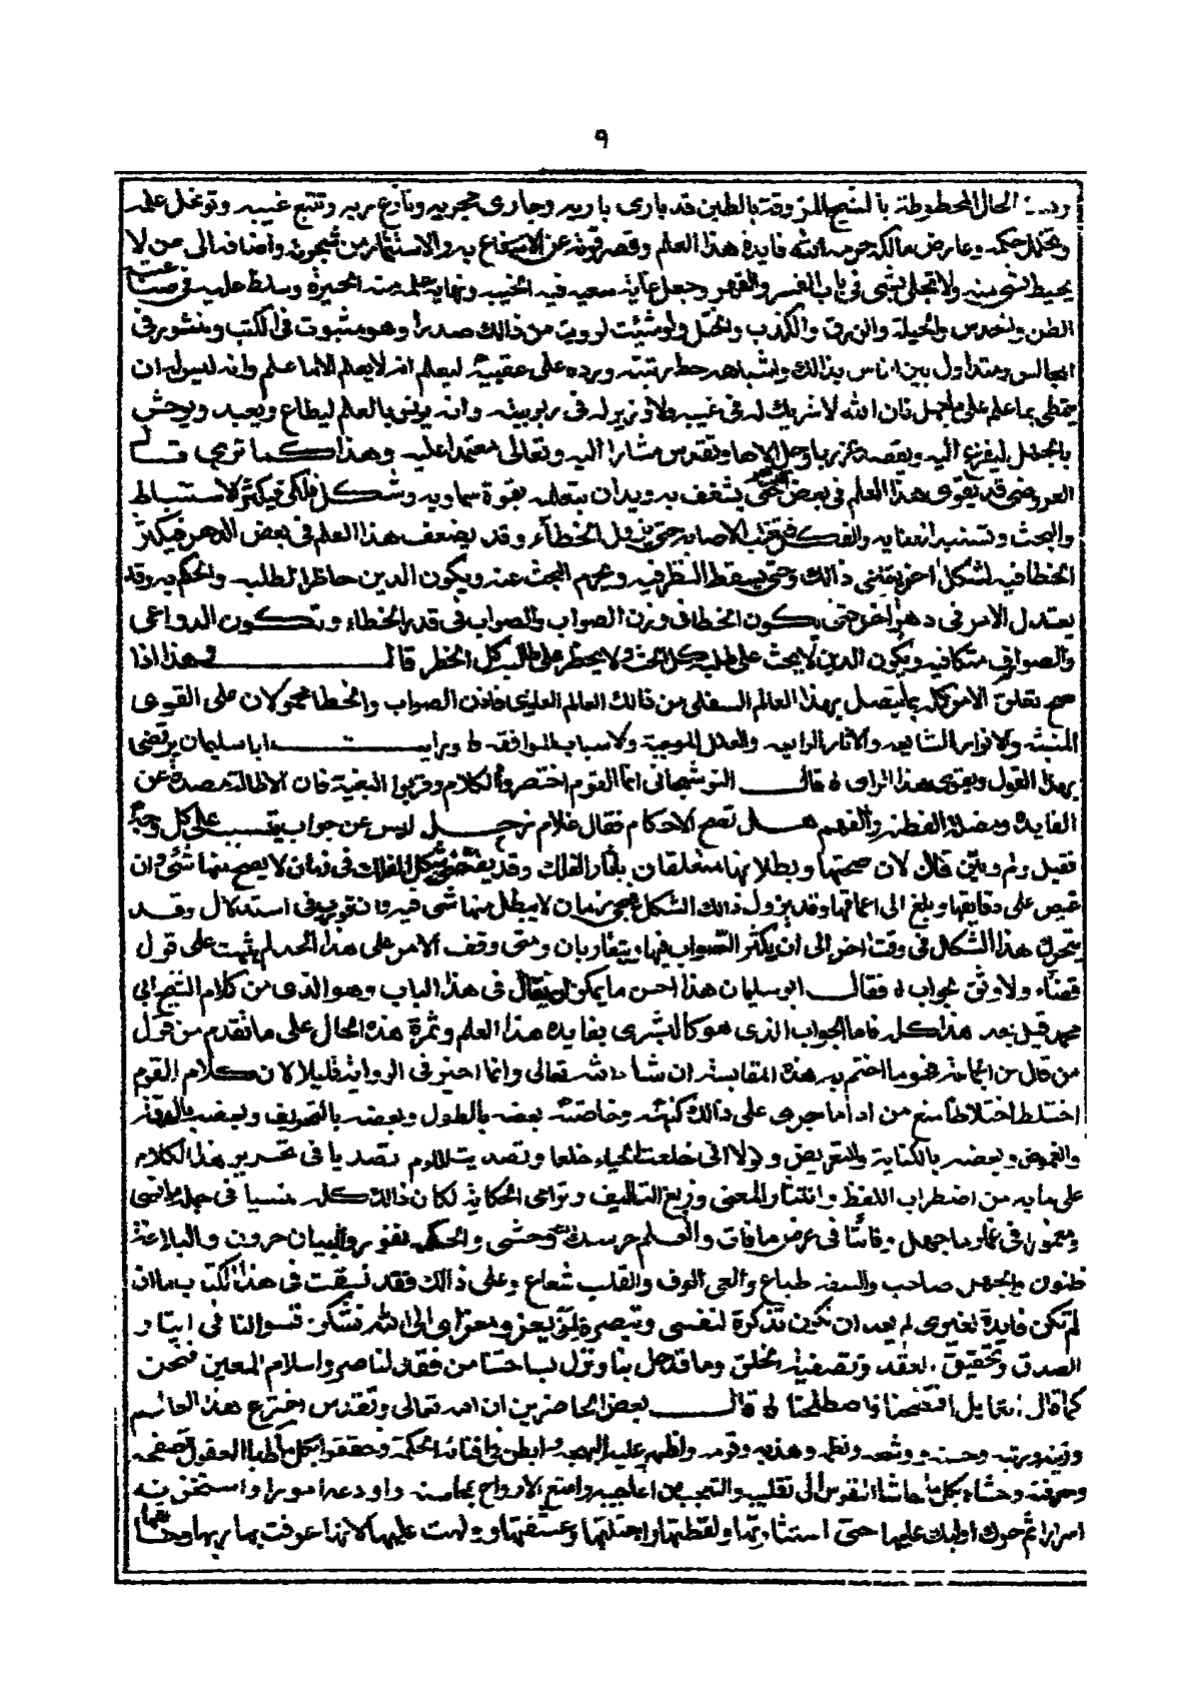 ٩
الحال المخطوطة بالشيح المزوقة بالطين قد بارى باريه وجارى مجريه ونازع ربه وتتبع غيبه وتوغل علمه
وتخلل حكمه وعارض مالكه حرمه الله فايدة هذا العلم وقصر قوته عن الانتفاع به والاستثمار من شجرته واضافه الى من لا
يحيط بشى منه ولا يحلى بشى فى باب القسر والقهر وجعل غاية سعيه فيه الخيبه ونهاية علمه منه الحيرة وسلط عليه فى صناعته
الظن والحدس والحيلة والزرق والكذب والختل ولو شئت لرويت من ذالك صدرا وهو مثبوت فى الكتب ومنثور فى
المجالس ومتداول بين الناس بذالك واشباهه حط رتبته ورده على عقبيه ليعلم انه لا يعلم الا ما علم وانه ليس له ان
يتخطى بما علم على ما جهل فان الله لا شريك له فى غيبه ولا وزير له فى ربوبيته وانه يونس بالعلم ليطاع ويعبد ويوحش
بالجهل ليفزع اليه ويقصد عز ربا وجل الاها وتقدس مشارا اليه وتعالى معتمدا عليه وهذا كما ترى قال
العروضى قد يقوى هذا العلم فى بعض الدهر حتى يشغف به ويدان بتعلمه بقوة سماويه وشكل فلكى فيكثر الاستنباط
والبحث وتشتد العنايه والفكر فتغلب الاصابه حتى يزول الخطاء وقد يضعف هذا العلم فى بعض الدهر فيكثر
الخطا فيه لشكل اخر يقتضى ذالك وحتى يسقط النظر فيه ويحرم البحث عنه ويكون الدين حاظرا لطلبه والحكم به وقد
يعتدل الامر فى دهر اخر حتى يكون الخطا فى وزن الصواب والصواب فى قدر الخطاء وتكون الدواعى
والصوارف متكافيه ويكون الدين لا يحث على طلبه كل الحث ولا يحظر على طالبه كل الحظر قال وهذا اذا
صح تعلق الامر كله بما يتصل بهذا العالم السفلى من ذالك العالم العلوى فاذن الصواب والخطا محمولان على القوى
المنبثه والانوار الشايعه والآثار الرايبه والعلل الموجبة والاسباب الموافقه ورايت اباسليمان يرتضى
بهذا القول ويقوى هذا الراى قال النوشجانى ايها القوم اختصروا الكلام وقربوا البغية فان الاطالة مصدة عن
الفايدة ومضلة للفطنه والفهم هل تصح الاحكام فقال غلام زحل ليس عن جواب يتسبب على كل وجه
فقيل ولم وبين قال لان صحتها وبطلانها متعلقان بآثار الفلك وقد يقتضى شكل الفلك فى زمان لا يصح منها شئ وان
غيص على دقايقها وبلغ الى اعماقها وقد يزول ذالك الشكل فيجى زمان لا يبطل منها شى فيه وان قورب فى استدلال وقد
يتحرك هذا الشكل فى وقت اخر الى ان يكثر الصواب فيها ويتقاربان ومتى وقف الامر على هذا الحد لم يثبت على قول
قضاء ولا وثق بجواب فقال ابوسليمان هذا احسن ما يمكن ان يقال فى هذا الباب وهو الذى من كلام الشيخ ابى
محمد قبل بعد هذا كله فاما الجواب الذى هو كالبشرى بفايدة هذا العلم وثمرة هذه الحال على ما تقدم من قول
من قال من الجماعة فهو ما اختم به هذه المقابسة ان شاء الله تعالى وانما احتر فى الرواية قليلا لان كلام القوم
اختلط اختلاطا منع من اداء ما جرى على ذالك كنهه وخاصته بعضه بالطول وبعضه بالتحريف وبعضه بالهذر
والغموض وبعضه بالكناية والتعريض ولولا انى خلعت الحياء خلعا وتصديت للوم تصديا فى تحرير هذا الكلام
على ما به من اضطراب اللفظ وانتشار المعنى وزيغ التاليف وترامى الحكاية لكان ذالك كله منسيا فى جملة ما نسى
ومغمورا فى غمار ما جهل وفائتا فى عرض ما فات والعلم حرسك الله وحشى والحكمه نفور والبيان حرون والبلاغة
ظنون والجهل صاحب والسفه طباع والعى الوف والقلب شعاع وعلى ذالك فقد نسقت فى هذا الكتاب ما ان
لم تكن فايدة لغيرى لم يعد ان تكون تذكرة لنفسى وتبصرة لمن يجرى مجراى الى الله نشكو قسوالنا فى ايثار
الصدق وتحقيق العقد وتصفية الخلق وما قد حل بنا ونزل بساحتنا من فقد الناصر واسلام المعين فنحن
كما قال القايل افتضحنا فاصطلحنا قال بعض الحاضرين ان الله تعالى وتقدس اخترع هذا العالم
وزينه ورتبه وحسنه ووشحه ونظمه وهذبه وقومه واظهر عليه البهجه وابطن فى اثنائه الحكمة وحففه بكل ما اطبا العقول لتصفحه
ومعرفته وحشاه بكل ما حاشا النفوس الى تقليبه والتعجب من اعاجيبه وامتع الارواح بمحاسنه واودعه امورا واستخزنه
اسرارا ثم حرك الالباب عليها حتى استثارتها ولقطتها واجتلتها وعشقتها ودلهت عليها لانها عرفت بها ربها وخالقها